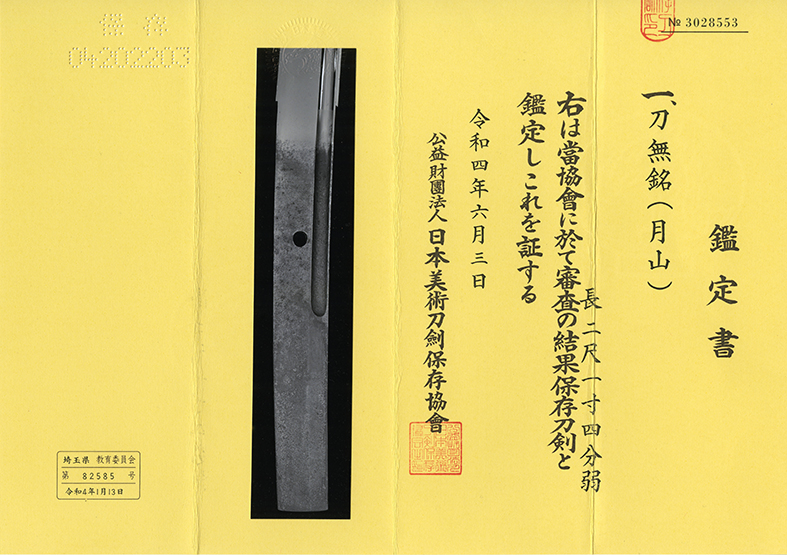 № 3028553
鑑定書
一、刀 無銘(月山)
長二尺一寸四分弱
右は當協會に於て審査の結果保存刀剣と
鑑定しこれを証する
令和四年六月三日
公益財團法人 日本美術刀劍保存協會
保存
04202203
埼玉県 教育委員会
第 82585 号
令和4年1月13日